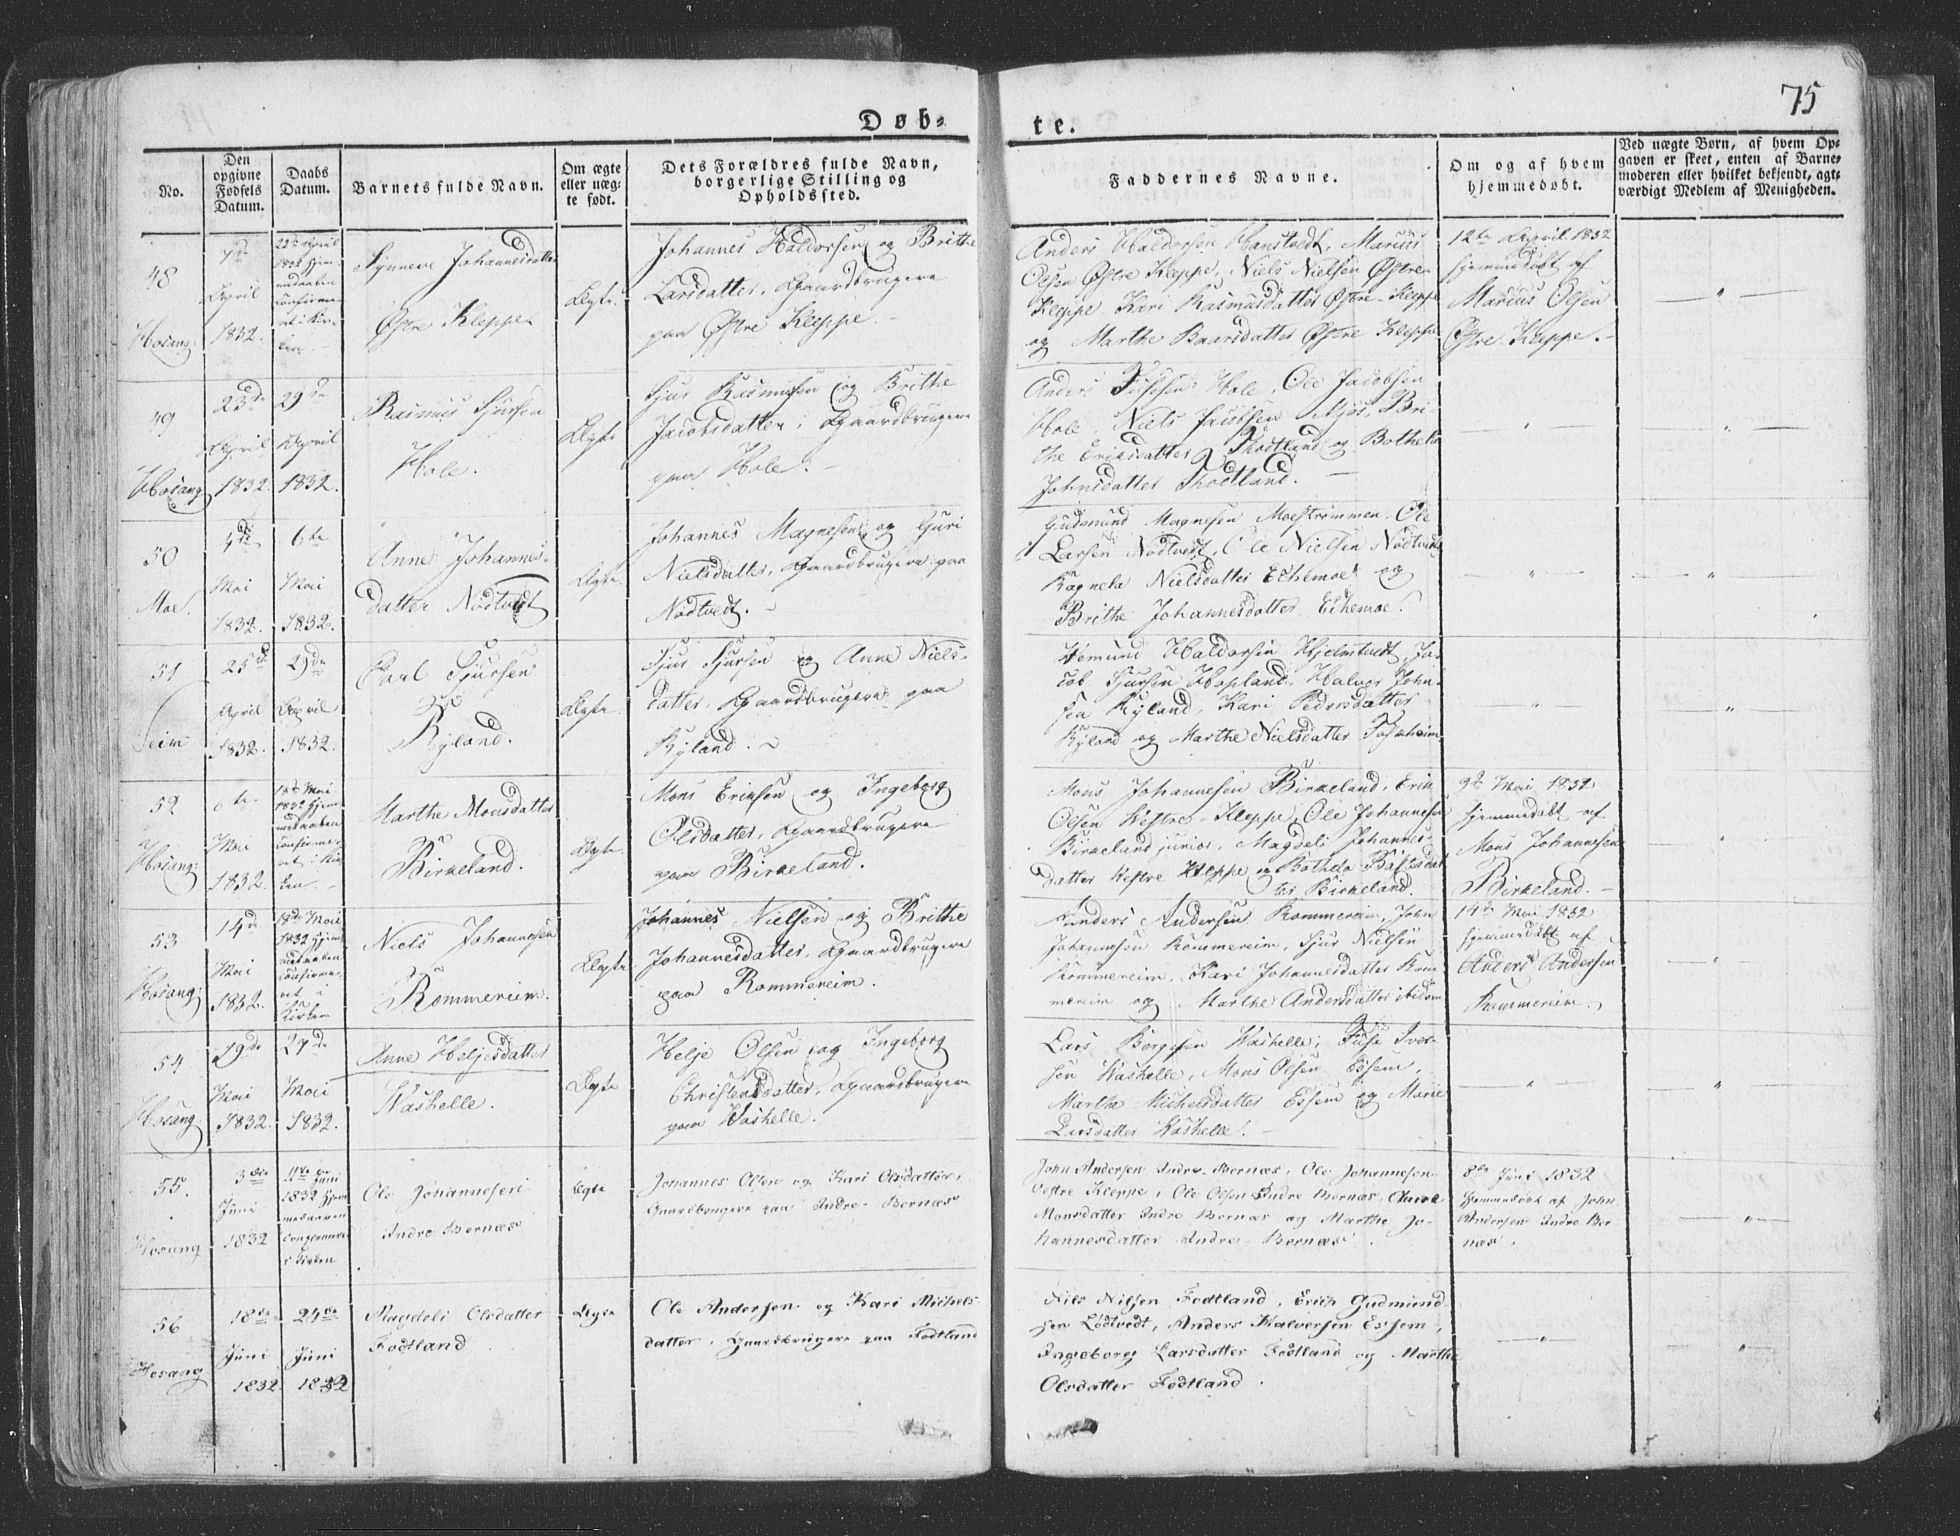 Døb-
te.
75
No.
Den
opgivne
Fødsels
Datum.
Daabs
Datum.
Barnets fulde Navn.
Om ægte
eller uæg-
te født.
Dets Forældres fulde Navn,
borgerlige Stilling og
Opholdssted.
Faddernes Navne.
Om og af hvem
hjemmedøbt.
Ved uægte Børn, af hvem Op-
gaven er skeet, enten af Barne-
moderen eller hvilket bekjendt, agt-
værdigt Medlem af Menigheden.
48
Hosang:
7de
April
1832.
22de April
1832 hjem-
medaaben
confirme-
ret i Kir-
ken.
Synneve Johannesdatter
Østre Kleppe
Ægte.
Johannes Haldorsen og Brithe
Larsdatter, Gaardbrugere
paa Østre Kleppe.
Anders Haldorsen Hanstvedt, Marius
Olsen Østre Kleppe, Niels Nielsen Østre
Kleppe, Kari Rasmusdatter Østre-Kleppe
og Marthe Baarsdatter Østre Kleppe
12te April 1832
hjemmedøbt af
Marius Olsen
Østre-Kleppe.
49
Hosang
23de
April
1832.
29de
April
1832.
Rasmus Sjursen
Hole.
Ægte
Sjur Rasmusen og Brithe
Jacobsdatter, Gaardbrugere
paa Hole.
Anders Hole, Ole Jacobsen
Hole, Niels Jacobsen Mjøs, Bri-
the Eriksdatter Skodtland og Bothela
Johnsdatter Skodtland.
50
Moe.
4de
Mai
1832.
6te
Mai
1832.
Anne Johannes-
datter Nodtvedt
Ægte.
Johannes Magnesen og Guri
Nielsdatter, Gaardbrugere paa
Nodtvedt.
Gudmund Magnesen Moestrømmen, Ole
Larsen Nodtvedt, Ole Nielsen Nodtvedt
Ragnela Nielsdatter Echemoe og
Brithe Johannesdatter Echemoe.
51
Seim
25de
April
1832.
29de
April
1832.
Carl Sjursen
Ryland.
Ægte.
Sjur Sjursen og Anne Niels-
datter, Gaardbrugere paa
Ryland.
Hemund Haldorsen Hjelmtvedt, Ja-
cob Sjursen Hopland, Halvor John-
sen Ryland, Kari Pedersdatter
Ryland og Marthe Nielsdatter
52
Hosang:
6te
Mai
1832.
Mai
1832 hjem-
medaaben
confirme-
ret i Kir-
ken.
Marthe Monsdatter
Birkeland.
Ægte.
Mons Eriksen og Ingeborg
Olsdatter, Gaardbrugere
paa Birkeland.
Mons Johannesen Birkeland, Erik
Olsen Vestre-Kleppe, Ole Johannesen
Birkeland junior, Magdeli Johannes-
datter Vestre Kleppe og Bothela
ter Birkeland.
9de Mai 1832
hjemmedøbt af
Mons Johannesen
Birkeland.
53
Hosang:
14de
Mai
1832.
Mai
1832 hjem-
medaaben
confirme-
ret i
Kirken
Niels Johannesen
Rommereim.
Ægte
Johannes Nielsen og Brithe
Johannesdatter, Gaardbrugere
paa Rommereim.
Anders Andersen Rommereim, John
Johannesen Rommereim, Sjur Nielsen
Rommereim, Kari Johannesdatter Rom-
mereim og Marthe Andersdatter ibidem
14de Mai 1832
hjemmedøbt af
Anders Andersen
Rommereim.
54
Hosang
19de
Mai
1832.
27de
Mai
1832.
Anne Heljesdatter
Vashelle.
Ægte
Helje Olsen og Ingeborg
Christensdatter, Gaardbrugere
paa Vashelle.
Lars Bergesen Vashelle, Iver-
sen Vashelle, Mons Olsen Essem,
Marthe Michelsdatter Essem og Marie
Larsdatter Vashelle.
55.
Hosang
3die
Juni
1832
11te Juni
1832 hjem-
medaaben
confirmeret
i Kirken
Ole Johannesen
Indre Bernæs
Ægte
Johannes Olsen og Kari Olsdatter,
Gaardbrugere paa Indre-Bernæs
John Andersen Indre-Bernæs, Ole Johannesen
Vestre Kleppe, Ole Olsen Indre Bernæs, Anne
Monsdatter Indre Bernæs og Marthe Jo-
hannesdatter Indre-Bernæs.
8de Juni 1832
hjemmedøbt af John
Andersen Indre Ber-
næs.
56
Hosang
18de
Juni
1832.
24de
Juni
1832
Magdeli Olsdatter
Fodtland
Ægte
Ole Andersen og Kari Michels-
datter, Gaardbrugere paa Fodtland
Nils Nilsen Fodtland, Erich Gudmund-
sen Lødtvedt, Anders Halversen Essem,
Ingeborg Larsdatter Fodtland og Marthe
Olsdatter Fodtland.